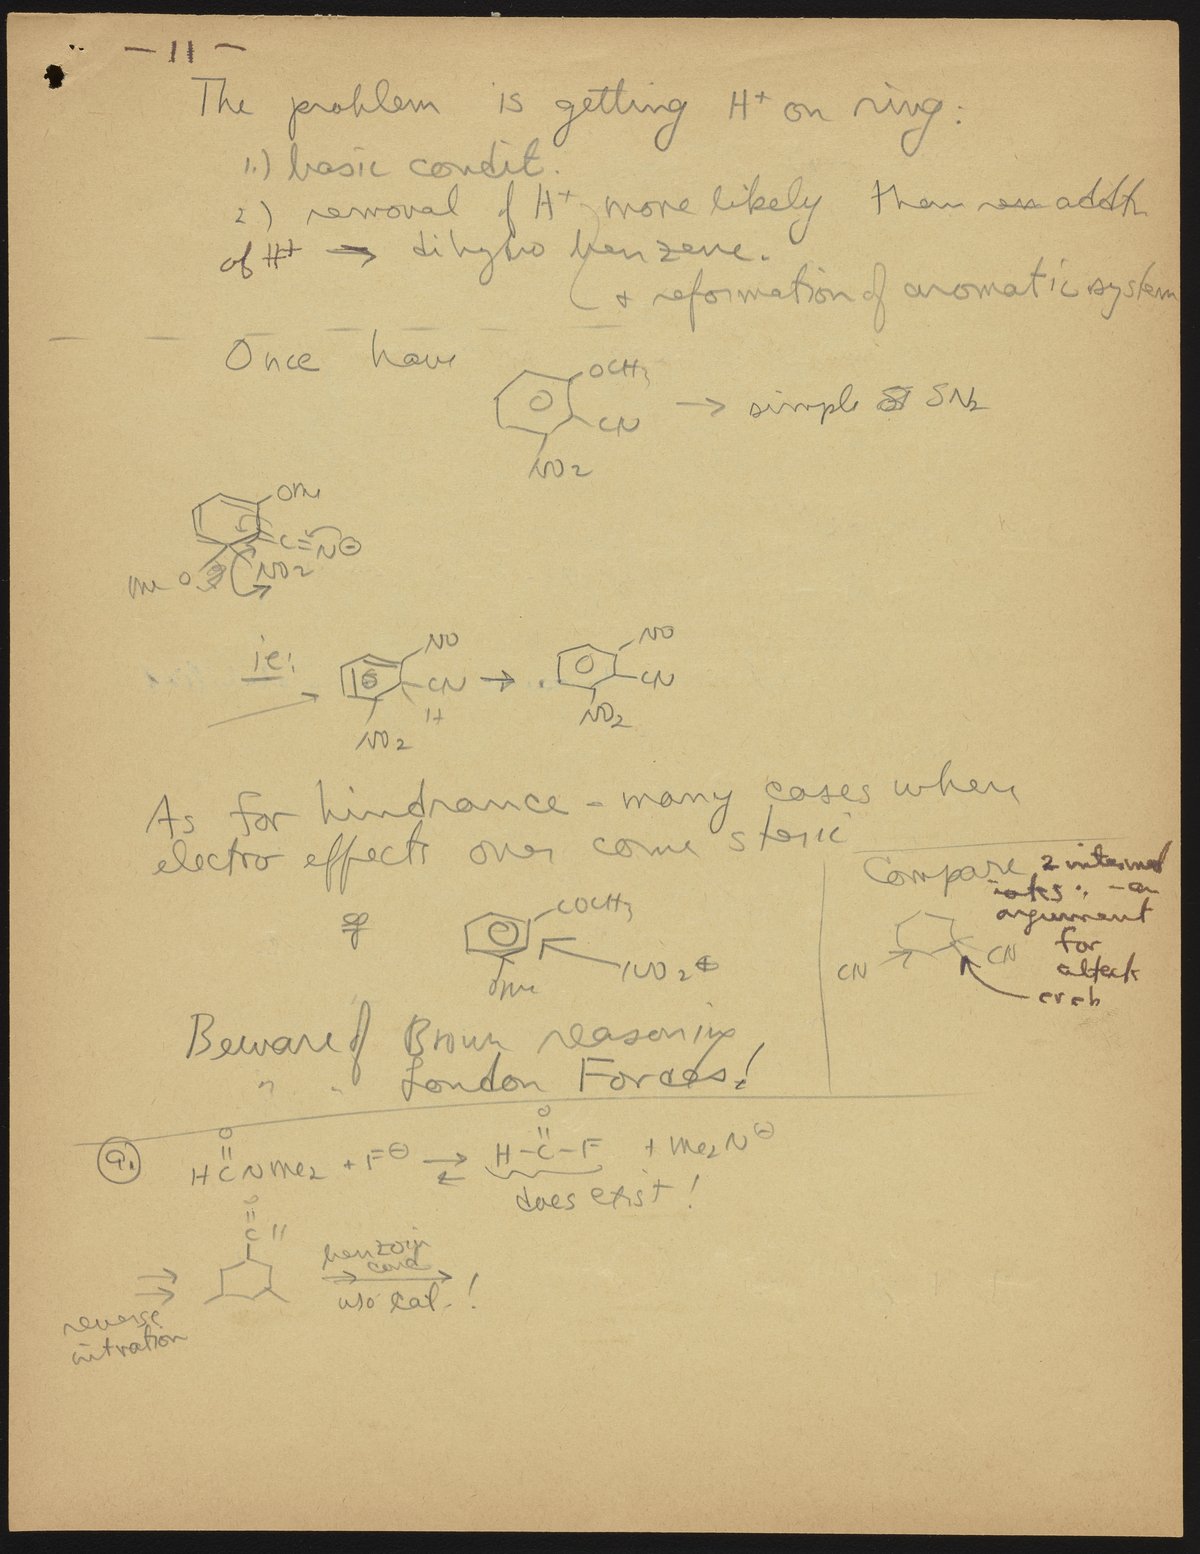 - 11 -
The problem is getting H+ on ring:
1.) basic condit.
2) removal of H+ more likely than addth
of H+ → dihydro benzene.
+ reformation of aromatic system
Once have
OCH3
CN
NO2
→ simple SN2
OMe
C=N⊖
NO2
MeO
ie:
NO
CN
H
NO2
→
NO
CN
NO2
As for hindrance - many cases where
electro effects over come steric
Compare 2 intermed
iates ∴ - an
argument
for
attack
CN
CN
eg
COCH3
OMe
NO2⊕
Beware of Brown reasoning
" " London Forces!
9.
O
HCNMe2 + F⊖ ⇌ H-C-F + Me2N⊖
O
does exist!
O
C H
reverse
nitration
benzoin
cond
w/o cat. !